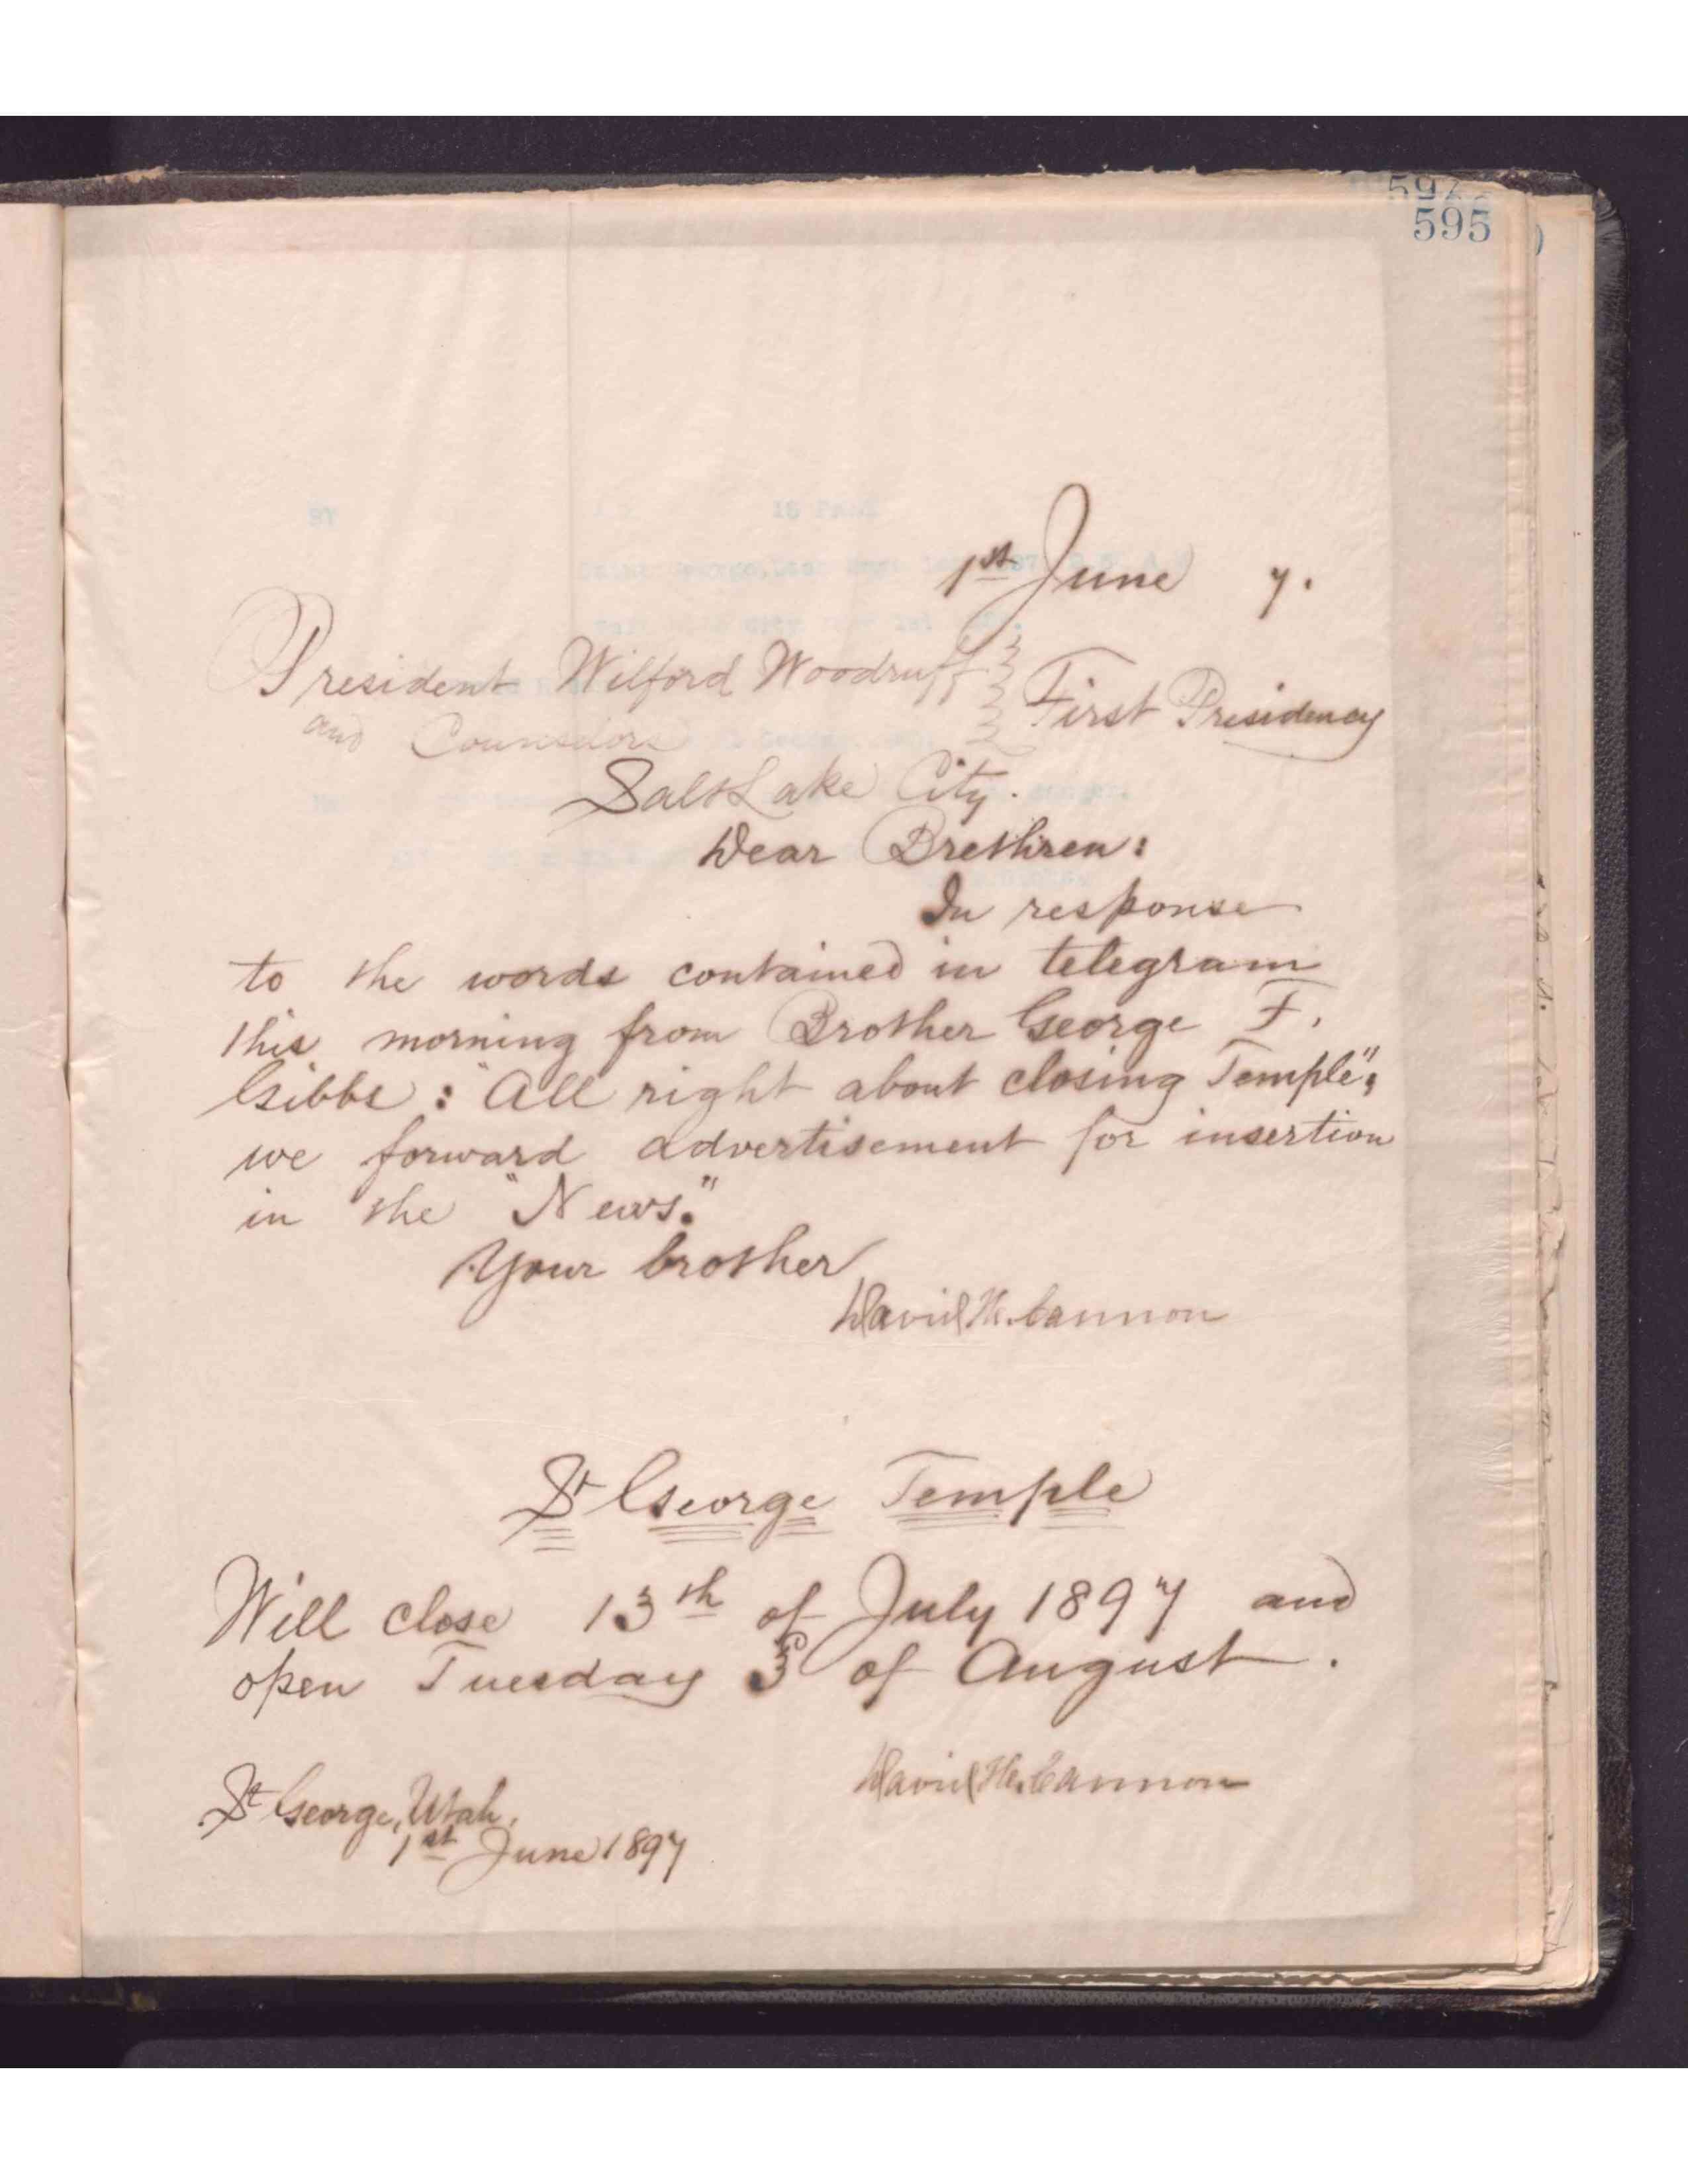 595
1st June 7.
President Wilford Woodruff
and Counselors
First Presidency
Salt Lake City.
Dear Brethren:
In response
to the words contained in telegram
this morning from Brother George F.
Gibbs: "All right about closing Temple",
we forward advertisement for insertion
in the "News."
Your brother
David H. Cannon
St George Temple
Will close 13th of July 1897 and
open Tuesday 3d of August.
David H. Cannon
St George, Utah,
1st June 1897